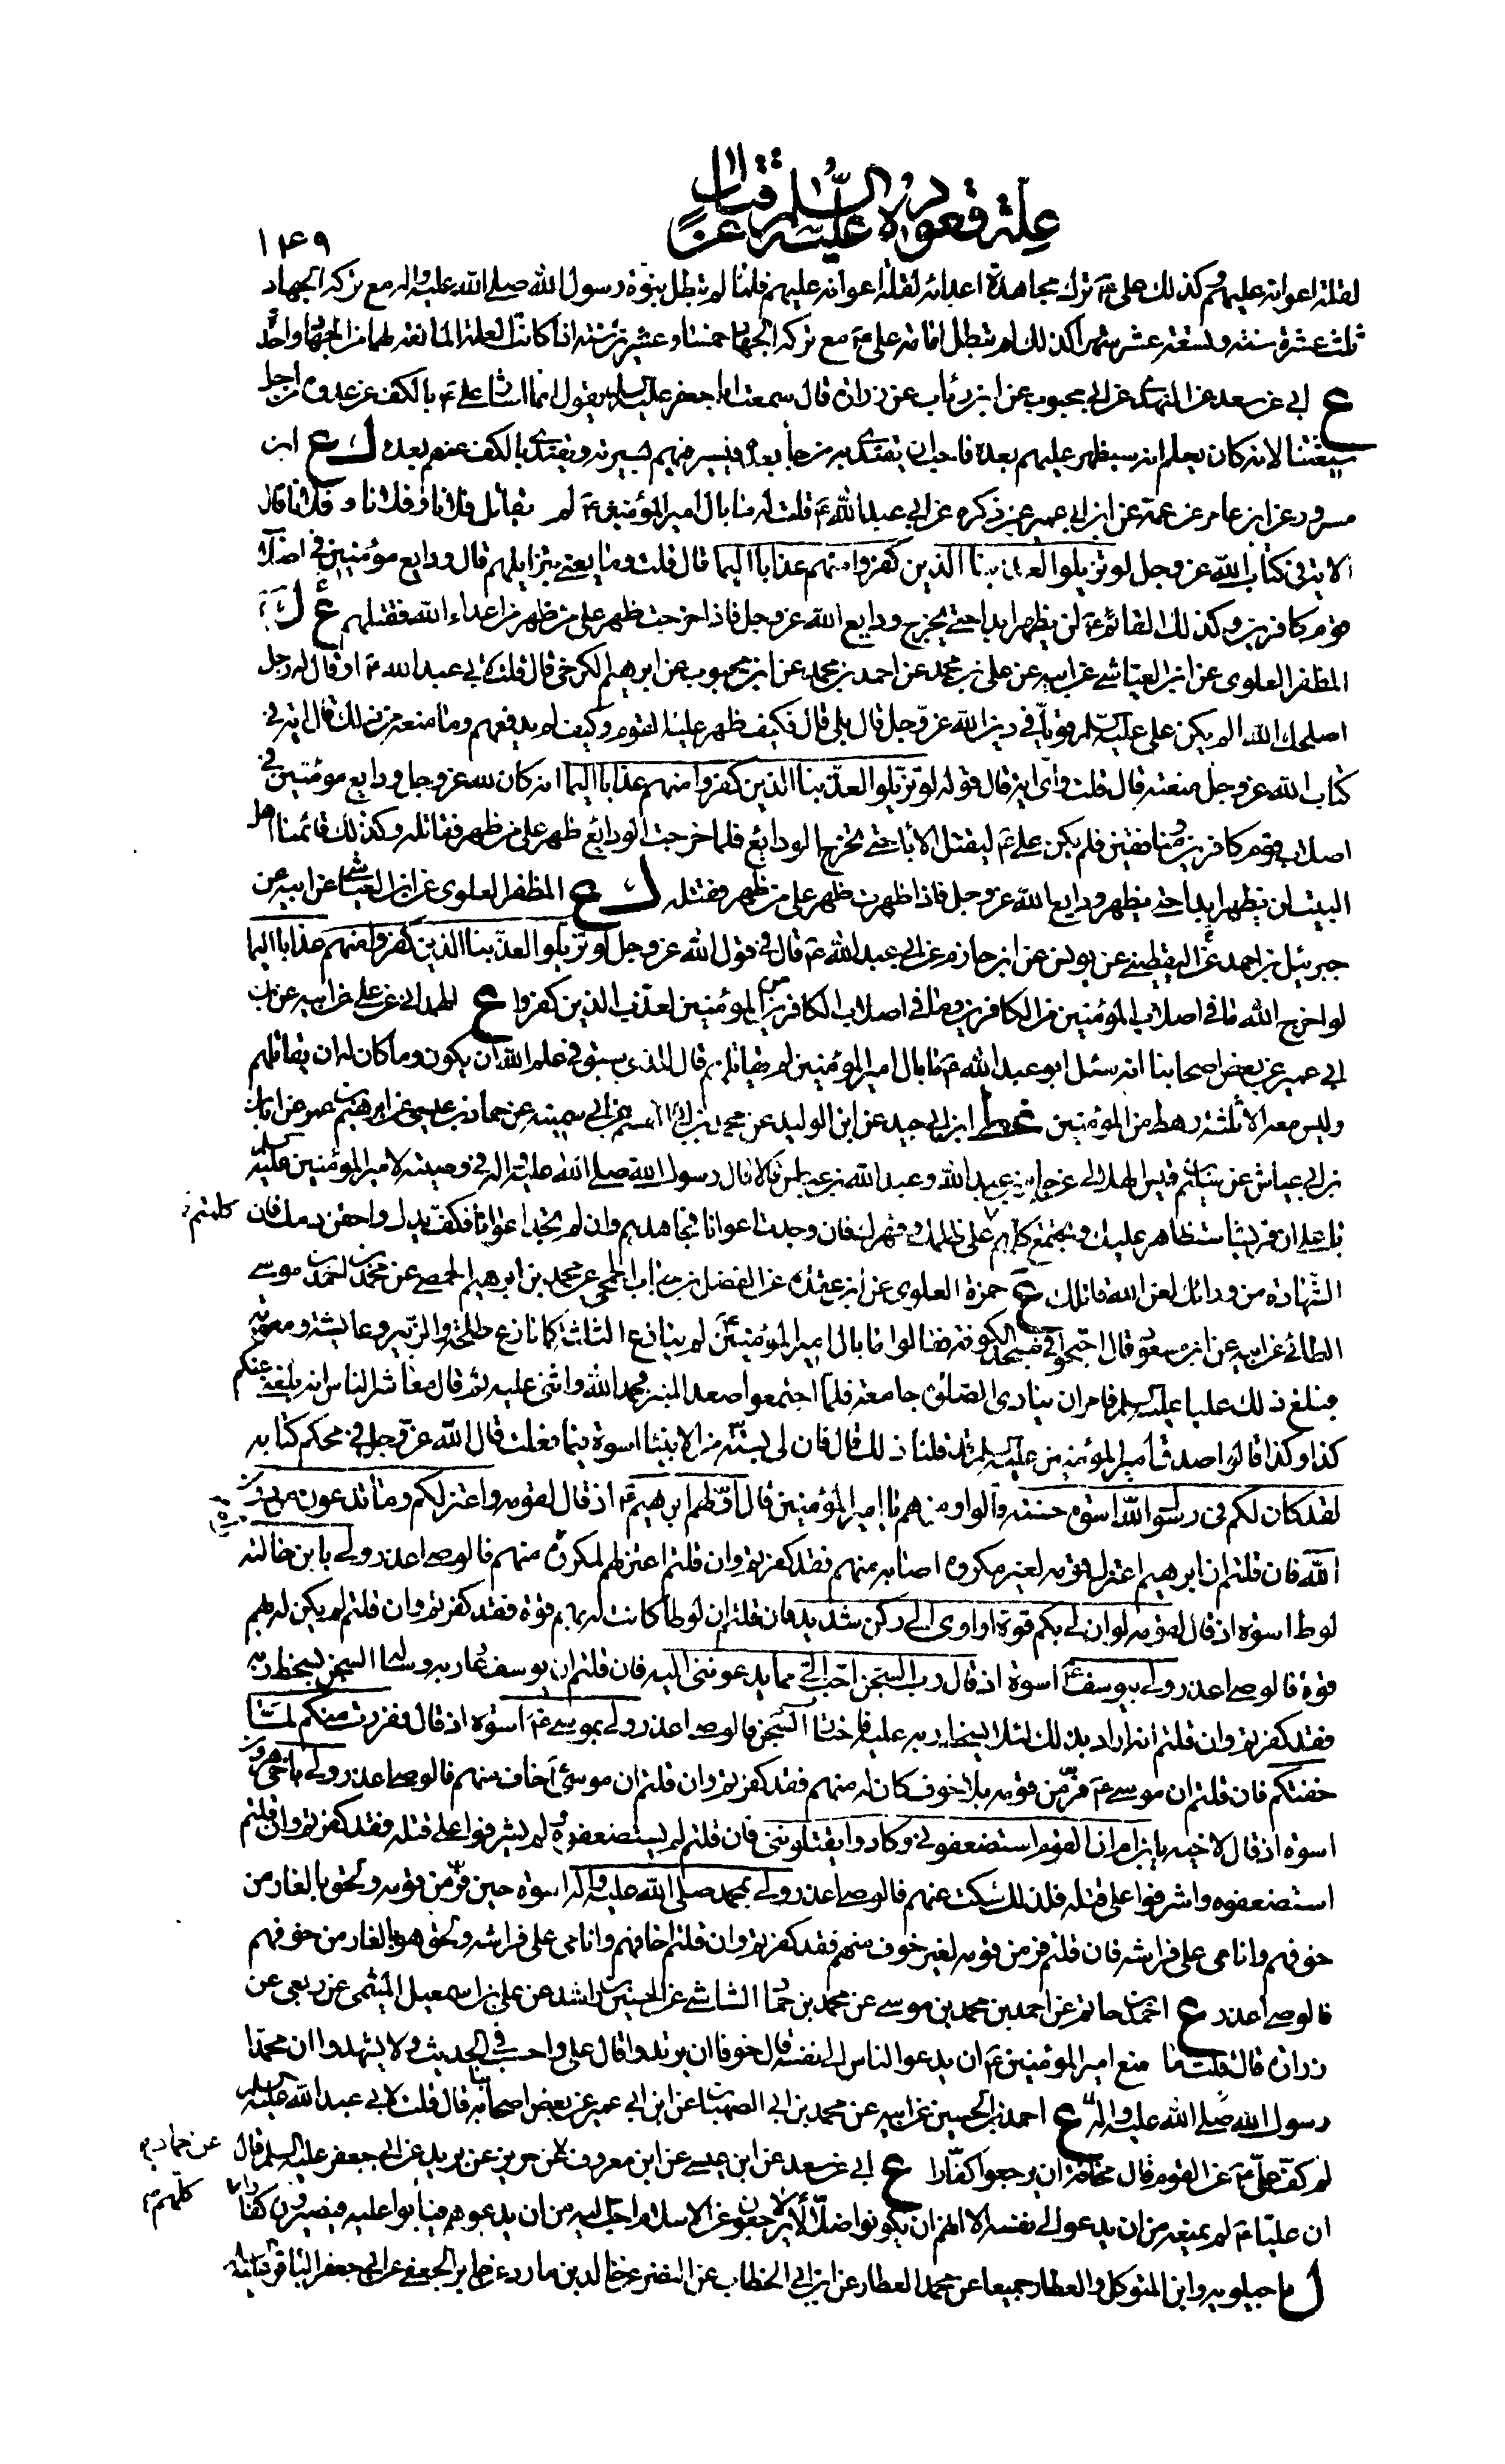 علة قعوده عليه السلام عن قتال
١٤٩
لقلة اعوانه عليهم وكذلك علي ع ترك مجاهدة اعدائه لقلة اعوانه عليهم فلما لم تبطل نبوة رسول الله صلى الله عليه واله مع تركه الجهاد
ثلث عشرة سنة وتسعة عشر شهرا كذلك لم تبطل امامة علي ع مع تركه الجهاد خمسا وعشرين سنة اذا كانت العلة المانعة لهما من الجهاد واحدة
ع ابي عن سعد عن النهدي عن ابي محبوب عن ابن رئاب عن زرارة قال سمعت ابا جعفر عليه السلم يقول انما اشار علي ع بالكف عن عدوه من اجل
شيعتنا لانه كان يعلم انه سيظهر عليهم بعده فاحب ان يقتدي به من جاء بعده فيسير فيهم بسيرته ويقتدي بالكف عنهم بعده ك ع ابن
مسرور عن ابن عامر عن عمه عن ابن ابي عمير عمن ذكره عن ابي عبد الله ع قلت له ما بال امير المؤمنين ع لم يقاتل فلانا وفلانا وفلانا قال
لاية في كتاب الله عز وجل لو تزيلوا لعذبنا الذين كفروا منهم عذابا اليما قال قلت وما يعني بتزايلهم قال ودايع مؤمنين في اصلاب
قوم كافرين وكذلك القائم ع لن يظهر ابدا حتى يخرج ودايع الله عز وجل فاذا خرجت ظهر على من ظهر من اعداء الله فقتلهم ع ك
المظفر العلوي عن ابن العياشي عن ابيه عن علي بن محمد عن احمد بن محمد عن ابن محبوب عن ابرهيم الكرخي قال قلت لابي عبد الله ع او قال له رجل
اصلحك الله الم يكن علي عليه السلم قويا في دين الله عز وجل قال بلى قال فكيف ظهر عليه القوم وكيف لم يدفعهم وما منعه من ذلك قال اية في
كتاب الله عز وجل منعته قال قلت واي اية قال قوله لو تزيلوا لعذبنا الذين كفروا منهم عذابا اليما انه كان لله عز وجل ودايع مؤمنين في
اصلاب قوم كافرين ومنافقين فلم يكن علي ع ليقتل الاباء حتى تخرج الودايع فلما خرجت الودايع ظهر على من ظهر فقاتله وكذلك قائمنا اهل
البيت لن يظهر ابدا حتى يظهر ودايع الله عز وجل فاذا ظهرت ظهر على من ظهر فقتله ك ع المظفر العلوي عن ابن العياشي عن ابيه عن
جبرئيل بن احمد عن اليقطيني عن يونس عن ابن حازم عن ابي عبد الله ع قال في قول الله عز وجل لو تزيلوا لعذبنا الذين كفروا منهم عذابا اليما
لو اخرج الله ما في اصلاب المؤمنين من الكافرين وما في اصلاب الكافرين من المؤمنين لعذب الذين كفروا ع الهمداني عن علي عن ابيه عن ابن
ابي عمير عن بعض اصحابنا انه سئل ابو عبد الله ع ما بال امير المؤمنين لم يقاتلهم قال الذي سبق في علم الله ان يكون وما كان له ان يقاتلهم
وليس معه الا ثلثة رهط من المؤمنين غط ابن ابي جيد عن ابن الوليد عن محمد بن ابي القسم عن ابي سمينة عن حماد بن عيسى عن ابرهيم بن عمر عن ابان
بن ابي عياش عن سليم بن قيس الهلالي عن جابر بن عبد الله وعبد الله بن عباس قالا قال رسول الله صلى الله عليه واله في وصيته لامير المؤمنين عليه السلم
يا علي ان قريشا ستظاهر عليك وتجتمع كلهم على ظلمك وقهرك فان وجدت اعوانا فجاهدهم وان لم تجد اعوانا فكف يدك واحقن دمك فان كلمتهم
الشهادة من ورائك لعن الله قاتلك ع حمزة العلوي عن ابن عقدة عن الفضل بن حباب الجمحي عن محمد بن ابرهيم الحمصي عن محمد بن احمد بن موسى
الطائي عن ابيه عن ابن مسعود قال احتجوا في مسجد الكوفة فقالوا ما بال امير المؤمنين ع لم ينازع الثلثة كما نازع طلحة والزبير وعايشة ومعوية
فبلغ ذلك عليا عليه السلم فامر ان ينادى الصلوة جامعة فلما اجتمعوا صعد المنبر فحمد الله واثنى عليه ثم قال معاشر الناس انه بلغني عنكم
كذا وكذا قالوا صدق امير المؤمنين عليه السلم قد قلنا ذلك قال فان لي بسنة من الانبياء اسوة فيما فعلت قال الله عز وجل في محكم كتابه
لقد كان لكم في رسول الله اسوة حسنة قالوا ومن هم يا امير المؤمنين قال اولهم ابرهيم ع اذ قال لقومه واعتزلكم وما تدعون من دون
الله فان قلتم ان ابرهيم اعتزل قومه لغير مكروه اصابه منهم فقد كفرتم وان قلتم اعتزلهم لمكروه منهم فالوصي اعذر ولي بابن خالته
لوط اسوة اذ قال لقومه لو ان لي بكم قوة او اوي الى ركن شديد فان قلتم ان لوطا كانت له بهم قوة فقد كفرتم وان قلتم لم يكن له بهم
قوة فالوصي اعذر ولي بيوسف ع اسوة اذ قال رب السجن احب الي مما يدعونني اليه فان قلتم ان يوسف دعا ربه وساله السجن لسخط ربه
فقد كفرتم وان قلتم انه اراد بذلك لئلا يسخط ربه عليه فاختار السجن فالوصي اعذر ولي بموسى ع اسوة اذ قال ففررت منكم لما
خفتكم فان قلتم ان موسى ع فر من قومه بلا خوف كان له منهم فقد كفرتم وان قلتم ان موسى خاف منهم فالوصي اعذر ولي باخي هرون
اسوة اذ قال لاخيه يابن ام ان القوم استضعفوني وكادوا يقتلونني فان قلتم لم يستضعفوه ولم يشرفوا على قتله فقد كفرتم وان قلتم
استضعفوه واشرفوا على قتله فلذلك سكت عنهم فالوصي اعذر ولي بمحمد صلى الله عليه واله اسوة حين فر من قومه ولحق بالغار من
خوفهم وانامني على فراشه فان قلتم فر من قومه لغير خوف منهم فقد كفرتم وان قلتم خافهم وانامني على فراشه ولحق هو بالغار من خوفهم
فالوصي اعذر ع احمد بن حاتم عن احمد بن محمد بن موسى عن محمد بن حماد الشاشي عن الحسين بن راشد عن علي بن اسمعيل الميثمي عن ربعي عن
زرارة قال قلت ما منع امير المؤمنين ع ان يدعو الناس الى نفسه قال خوفا ان يرتدوا قال علي واحسب في الحديث ولا يشهدوا ان محمدا
رسول الله صلى الله عليه واله ع احمد بن الحسين عن ابيه عن محمد بن ابي الصهبان عن ابن ابي عمير عن بعض اصحابنا قال قلت لابي عبد الله عليه السلم
لم كف علي ع عن القوم قال مخافة ان يرجعوا كفارا ع ابي عن سعد عن ابن عيسى عن ابن معروف عن حريز عن بريد عن ابي جعفر عليه السلم قال عن حماد
ان عليا ع لم يمنعه من ان يدعو الى نفسه الا انهم ان يكونوا ضلالا لا يرجعون عن الاسلام احب اليه من ان يدعوهم فيأبوا عليه فيصيرون كفارا كلهم
ل ماجيلويه وابن المتوكل والعطار جميعا عن محمد العطار عن ابن ابي الخطاب عن النضر عن خالد بن ماد عن جابر الجعفي عن ابي جعفر الباقر